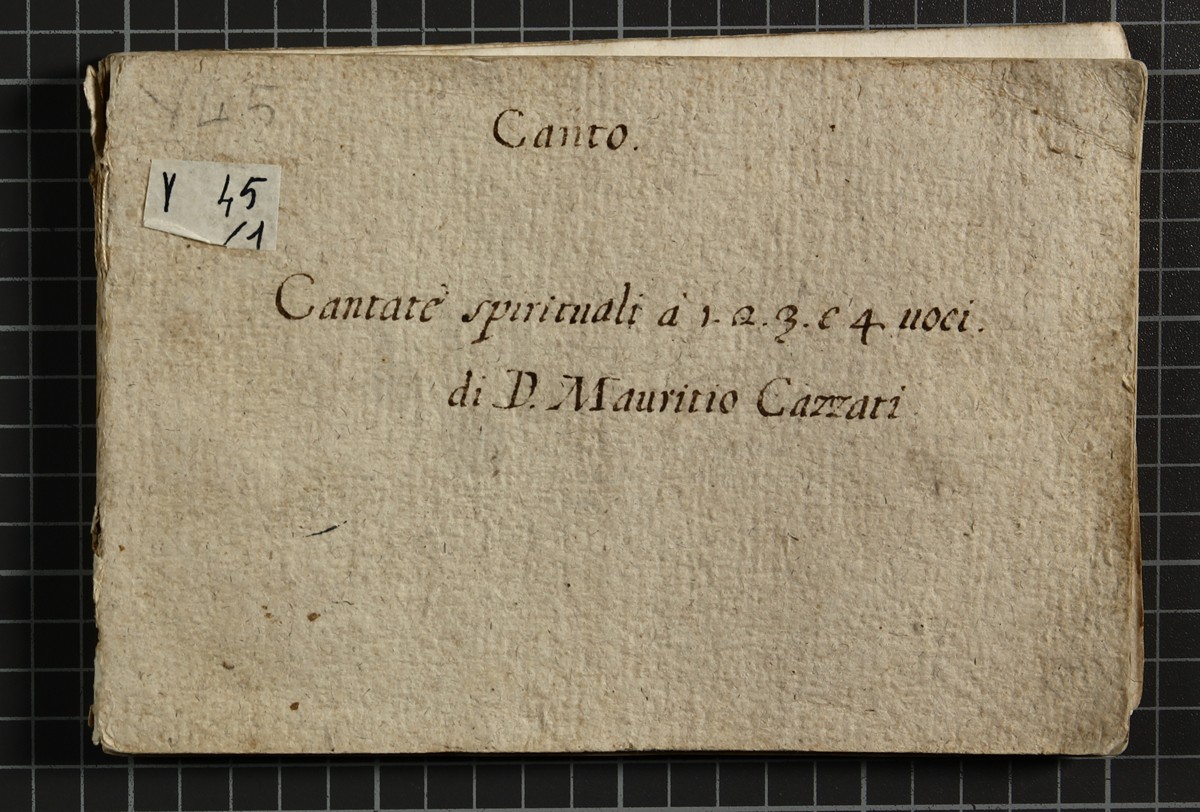 Y 45
Canto.
Y 45
/1
Cantate spirituali à 1. 2. 3. e 4 uoci.
di D. Mauritio Cazzati